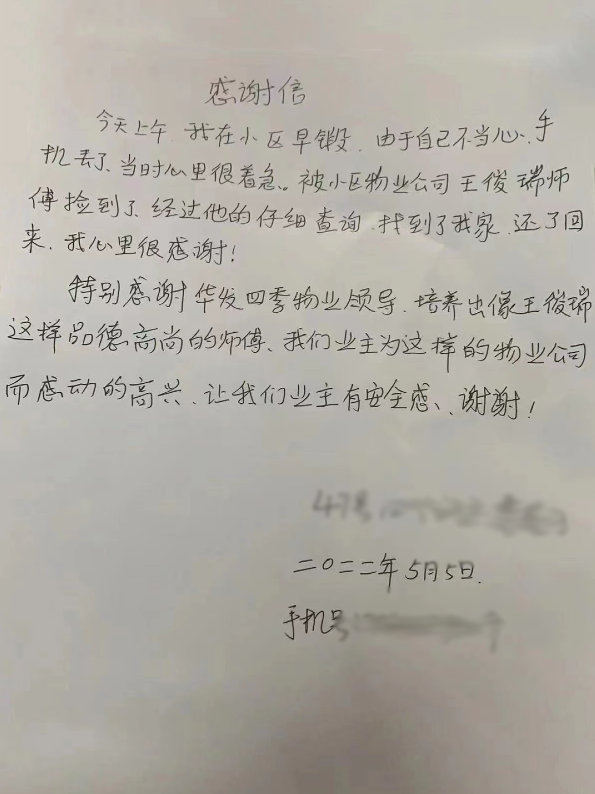 感谢信
今天上午.我在小区早锻.由于自己不当心、手
机丢了、当时心里很着急。被小区物业公司王俊瑞师
傅捡到了、经过他的仔细查询.找到了我家.还了回
来.我心里很感谢!
特别感谢华发四季物业领导.培养出像王俊瑞
这样品德高尚的师傅、我们业主为这样的物业公司
而感动的高兴、让我们业主有安全感、谢谢!
47号
二〇二二年5月5日.
手机号